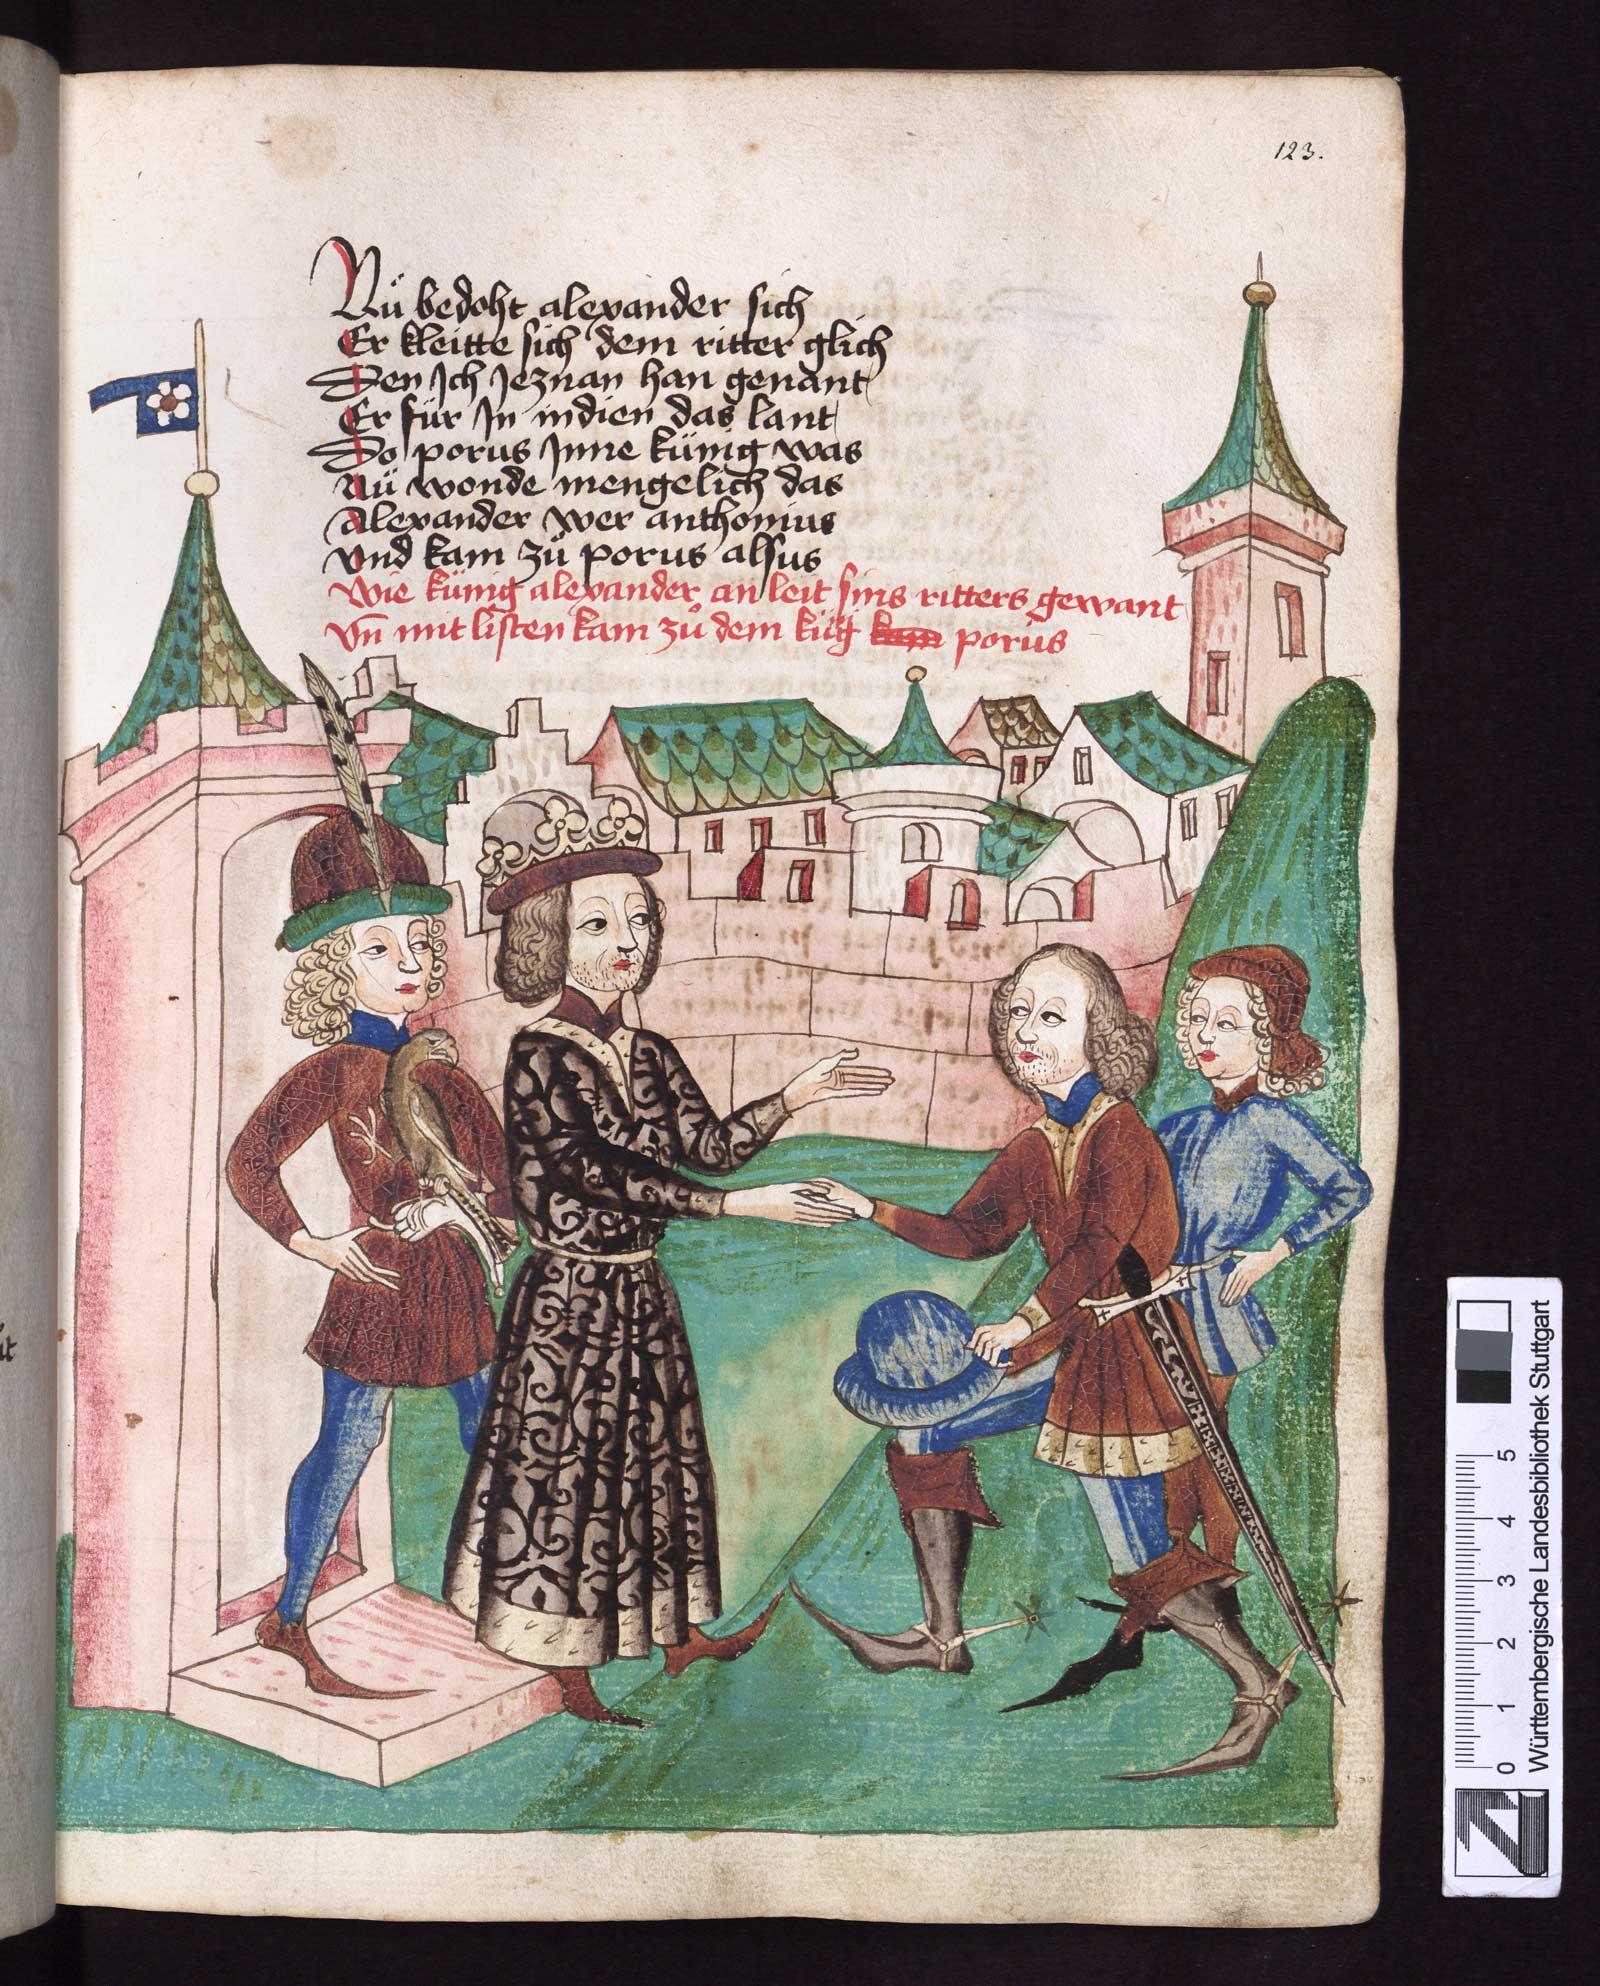 123.
Nů bedoht alexander sich
Er kleitte sich dem ritter glich
Den Jch Jeznan han genant
Er fůr Jn indien das lant
Do porus Jnne künig was
Nů wonde mengelich das
Alexander wer anthonius
vnd kam zů porus alsus
wie künig alexander an leit sins ritters gewant
vn̄ mit listen kam zů dem küg porus
0 1 2 3 4 5
Württembergische Landesbibliothek Stuttgart